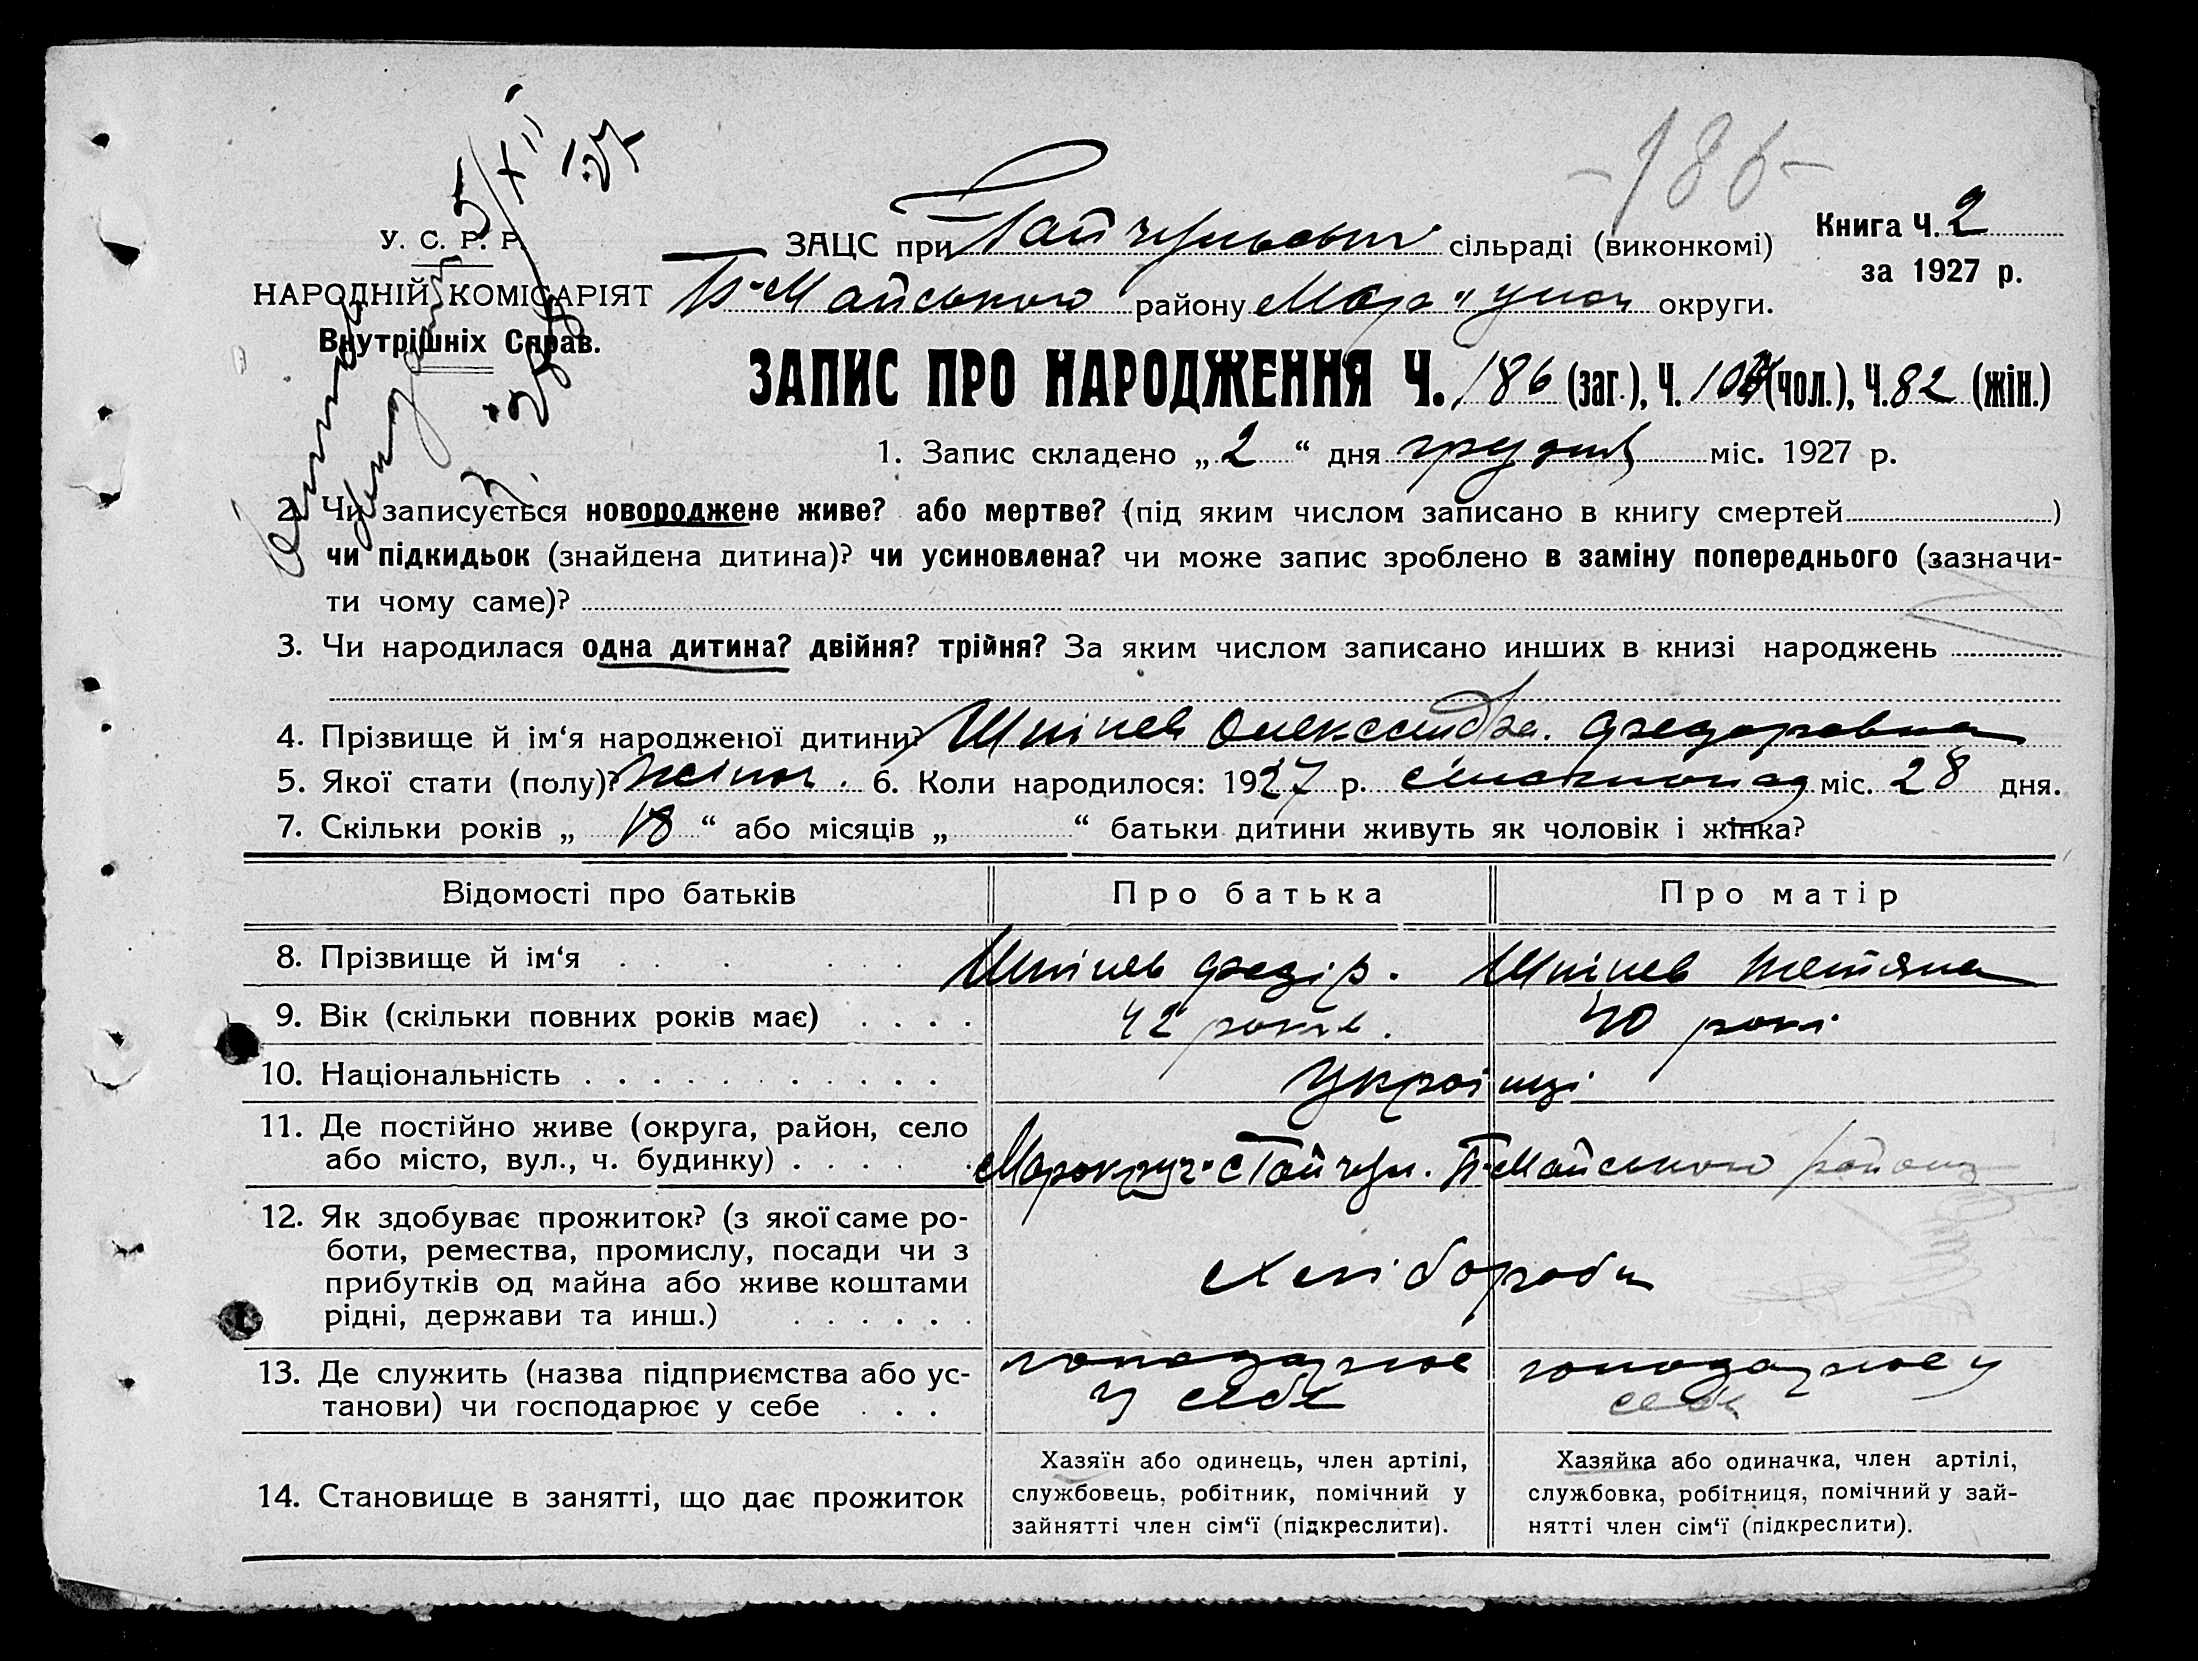 -186-
5/XII 27
У. С. Р. Р.
НАРОДНІЙ КОМІСАРІЯТ
Внутрішніх Справ.
ЗАЦС при Гайчульській сільраді (виконкомі)
Книга Ч. 2
за 1927 р.
П-Майського району Маріуп округи.
ЗАПИС ПРО НАРОДЖЕННЯ Ч. 186 (заг.), Ч. 104 (чол.), Ч. 82 (жін.)
1. Запис складено „ 2 “ дня грудня міс. 1927 р.
2. Чи записується новороджене живе? або мертве? (під яким числом записано в книгу смертей )
чи підкидьок (знайдена дитина)? чи усиновлена? чи може запис зроблено в заміну попереднього (зазначи-
ти чому саме)?
3. Чи народилася одна дитина? двійня? трійня? За яким числом записано инших в книзі народжень
4. Прізвище й ім‘я народженої дитини? Шпінев Олександра Федоровна
5. Якої стати (полу)? жіноч. 6. Коли народилося: 1927 р. листопад міс. 28 дня.
7. Скільки років „ 18 “ або місяців „ “ батьки дитини живуть як чоловік і жінка?
Відомості про батьків Про батька Про матір
8. Прізвище й ім‘я . . . . . . Шпінев Федір. Шпінев Тетяна
9. Вік (скільки повних років має) . . . . 42 років. 40 рокі
10. Національність . . . . . . . . . . . українці
11. Де постійно живе (округа, район, село
або місто, вул., ч. будинку) . . . . . Гайчул. П-Майського району
12. Як здобуває прожиток? (з якої саме ро-
боти, ремества, промислу, посади чи з
прибутків од майна або живе коштами
рідні, держави та инш.) . . . . . .
хлібороби
13. Де служить (назва підприємства або ус- господарює господарює у
танови) чи господарює у себе . . . у себе себе
14. Становище в занятті, що дає прожиток
Хазяїн або одинець, член артілі,
службовець, робітник, помічний у
зайнятті член сім‘ї (підкреслити).
Хазяйка або одиначка, член артілі,
службовка, робітниця, помічний у зай-
нятті член сім‘ї (підкреслити).